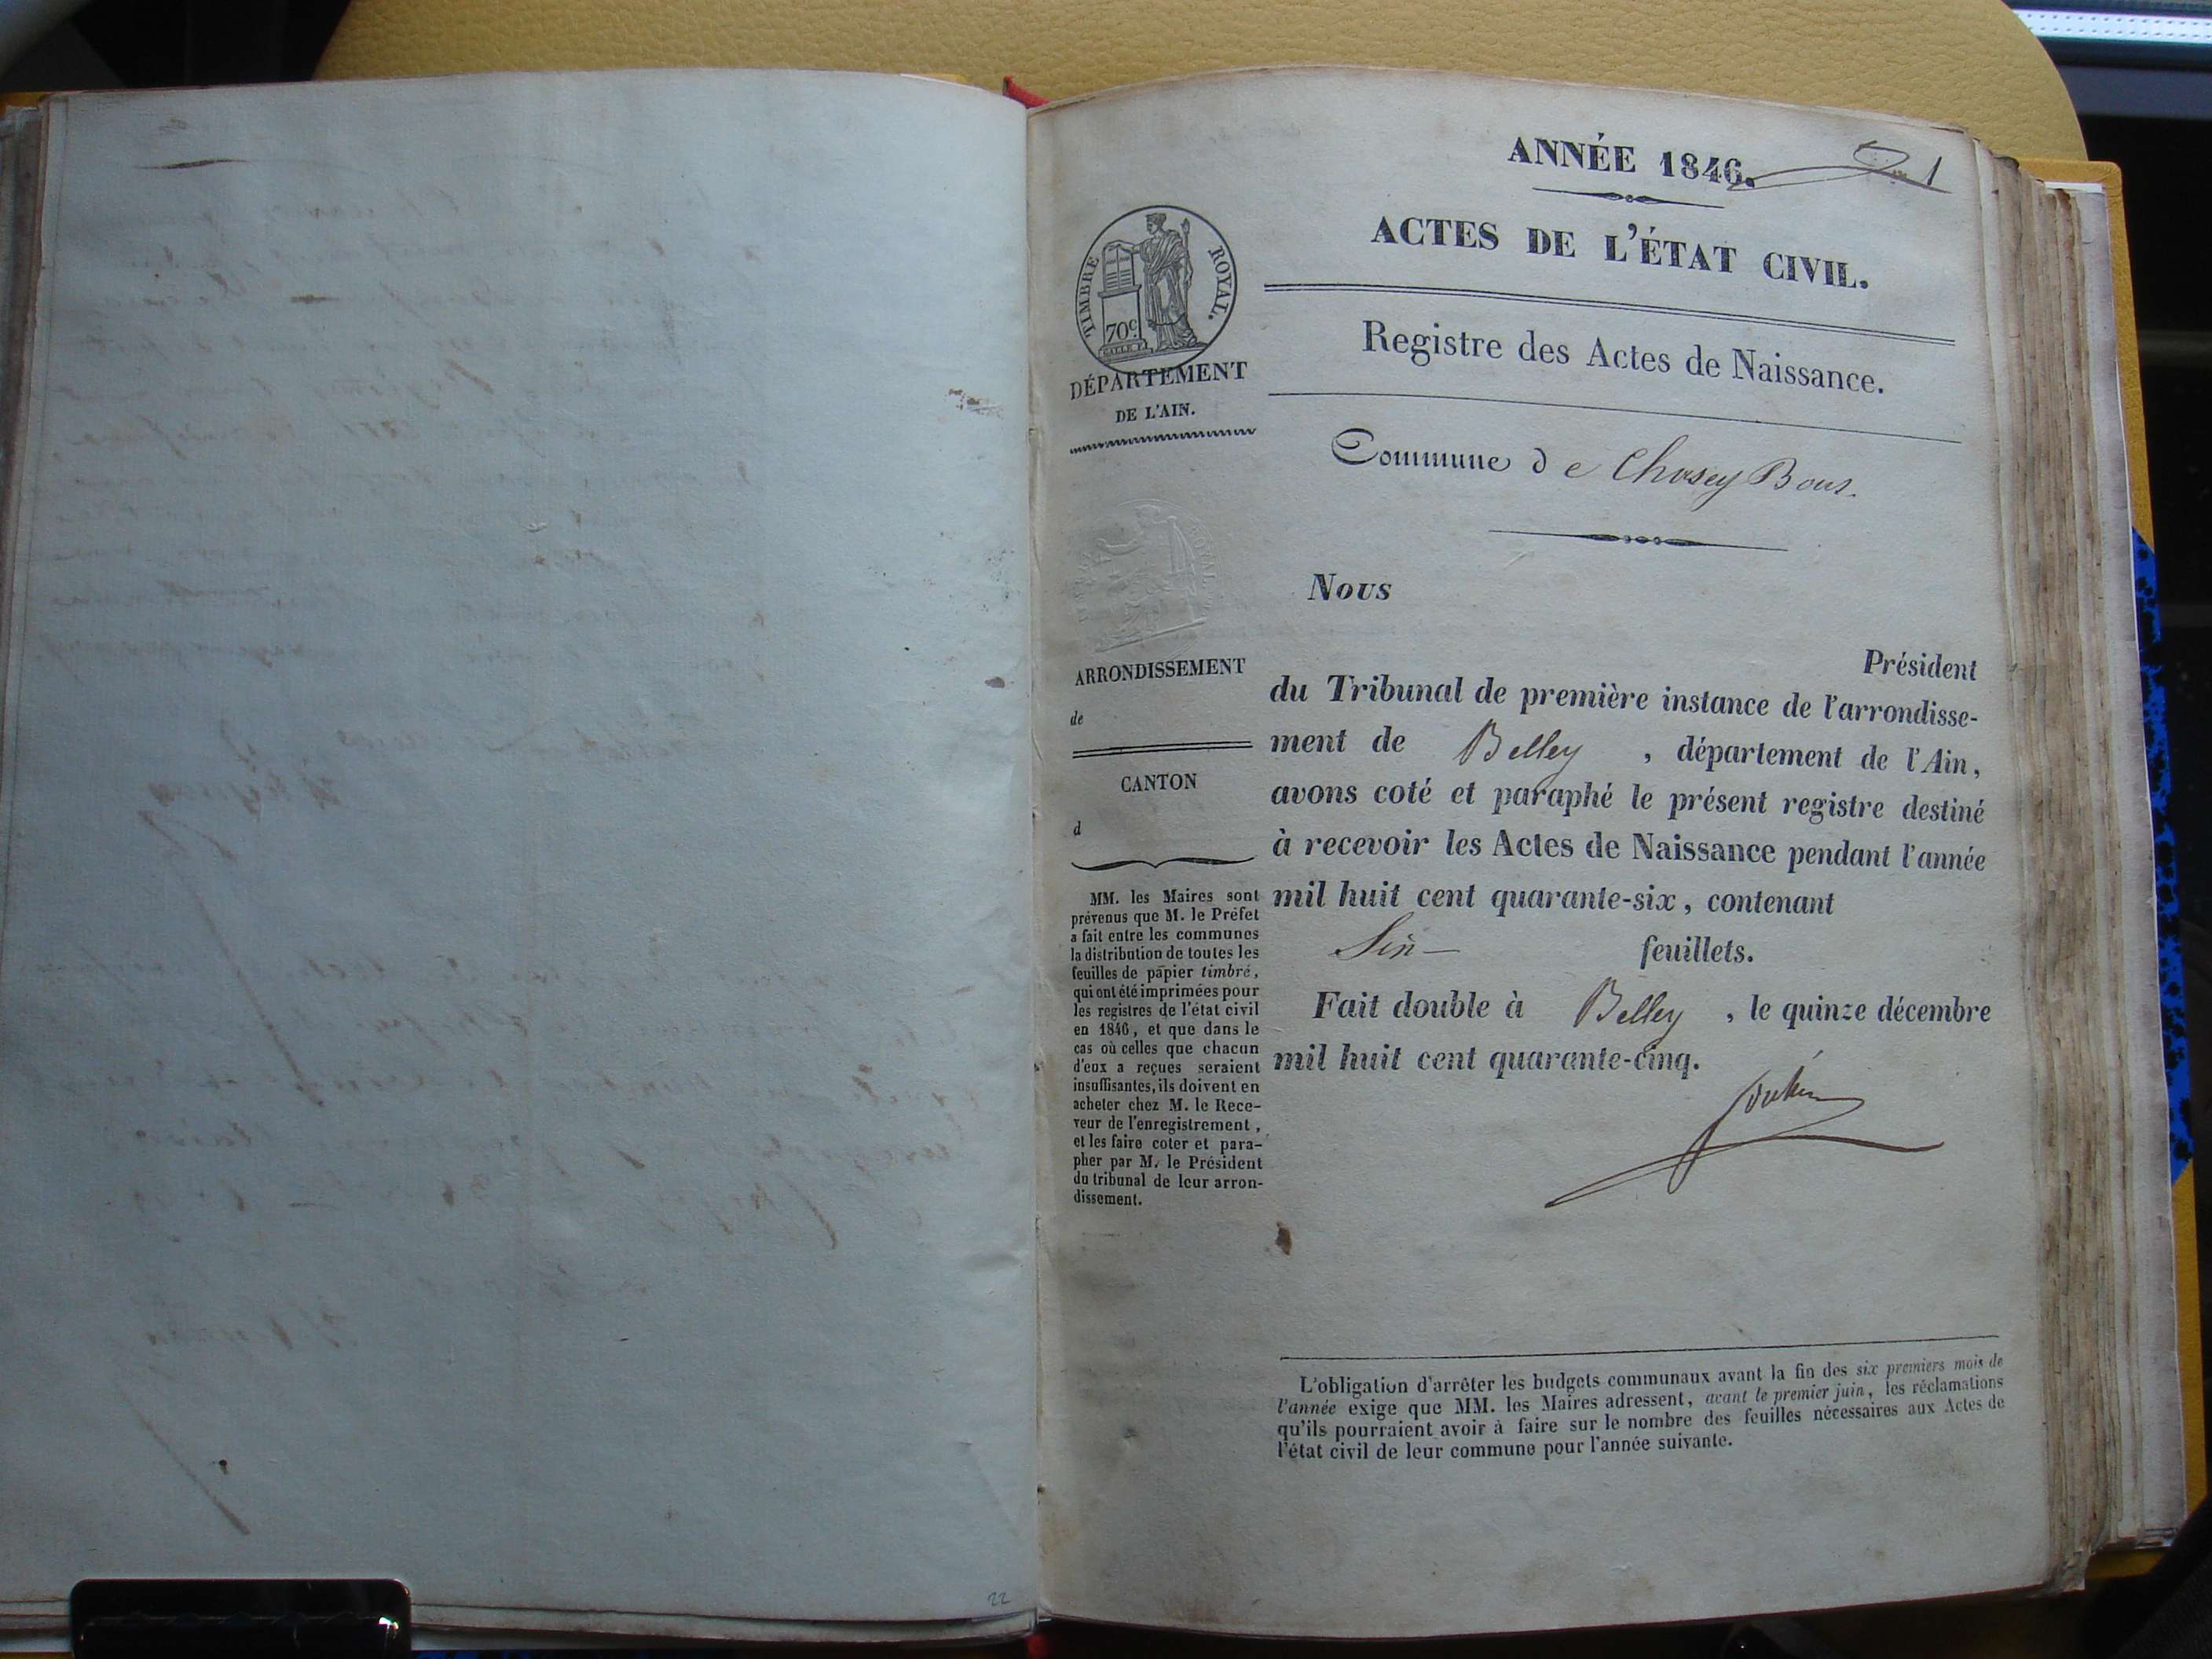 ANNÉE 1846.
1
ACTES DE L'ÉTAT CIVIL.
TIMBRE ROYAL.
70c
DÉPARTEMENT
DE L'AIN.
Registre des Actes de Naissance.
Commune de Chosey Bons.
ARRONDISSEMENT
de
CANTON
d
MM. les Maires sont
prévenus que M. le Préfet
a fait entre les communes
la distribution de toutes les
feuilles de papier timbré,
qui ont été imprimées pour
les registres de l'état civil
en 1846, et que dans le
cas où celles que chacun
d'eux a reçues seraient
insuffisantes, ils doivent en
acheter chez M. le Rece-
veur de l'enregistrement,
et les faire coter et para-
pher par M. le Président
du tribunal de leur arron-
dissement.
Nous
Président
du Tribunal de première instance de l'arrondisse-
ment de Belley, département de l'Ain,
avons coté et paraphé le présent registre destiné
à recevoir les Actes de Naissance pendant l'année
mil huit cent quarante-six, contenant
feuillets.
Fait double à Belley, le quinze décembre
mil huit cent quarante-cinq.
L'obligation d'arrêter les budgets communaux avant la fin des six premiers mois de
l'année exige que MM. les Maires adressent, avant le premier juin, les réclamations
qu'ils pourraient avoir à faire sur le nombre des feuilles nécessaires aux Actes de
l'état civil de leur commune pour l'année suivante.
22